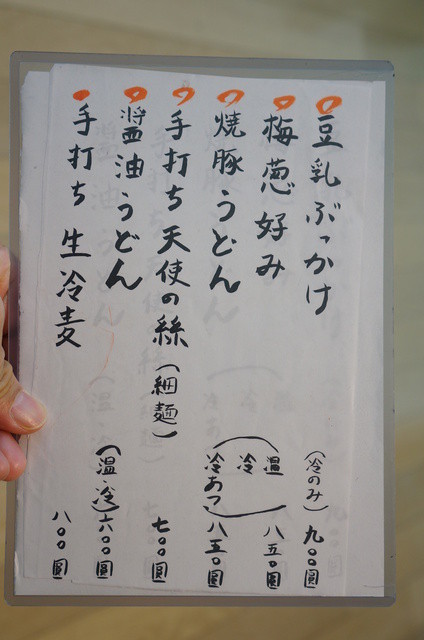 豆乳ぶっかけ (冷のみ) 九〇〇圓
梅葱好み 八五〇圓
焼豚うどん (温 冷 冷あつ) 八五〇圓
手打ち天使の絲(細麺) 七〇〇圓
醬油うどん (温・冷) 六〇〇圓
手打ち 生冷麦 八〇〇圓